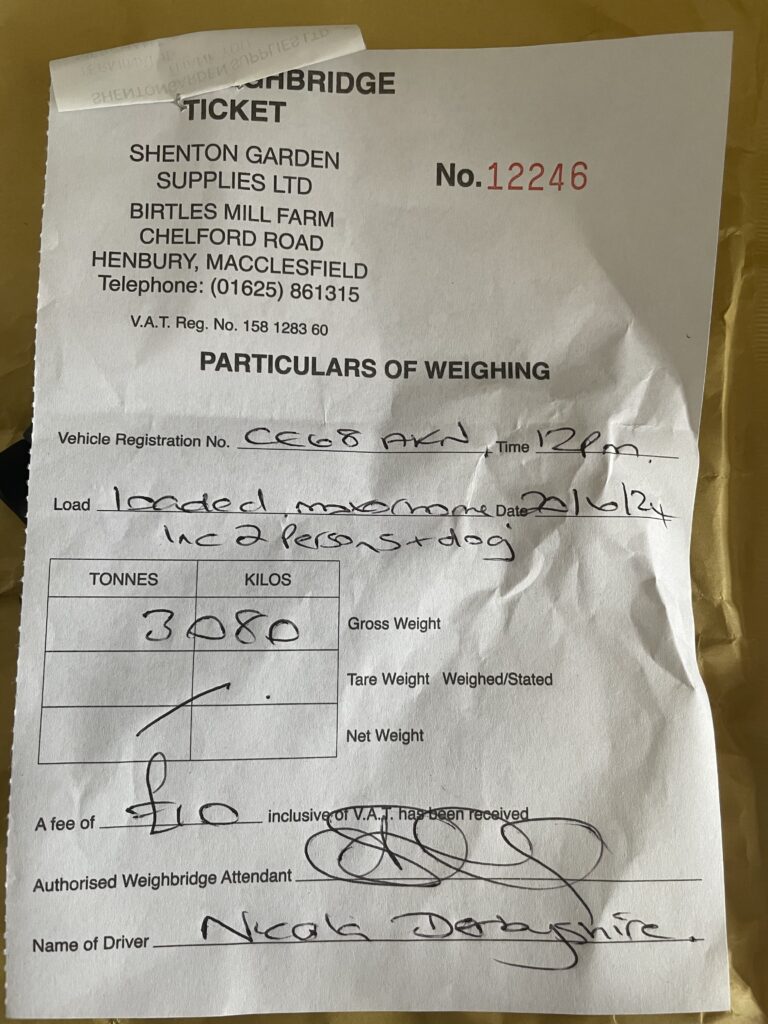 SHENTONGARDEN SUPPLIES LTD
GHBRIDGE
TICKET
SHENTON GARDEN
SUPPLIES LTD
No. 12246
BIRTLES MILL FARM
CHELFORD ROAD
HENBURY, MACCLESFIELD
Telephone: (01625) 861315
V.A.T. Reg. No. 158 1283 60
PARTICULARS OF WEIGHING
Vehicle Registration No. CE68 AKN Time 12pm.
Load loaded motorhome Date 20/6/24
Inc 2 Persons + dog
TONNES KILOS
3080 Gross Weight
Tare Weight Weighed/Stated
Net Weight
A fee of £10 inclusive of V.A.T. has been received
Authorised Weighbridge Attendant
Name of Driver Nicola Derbyshire.